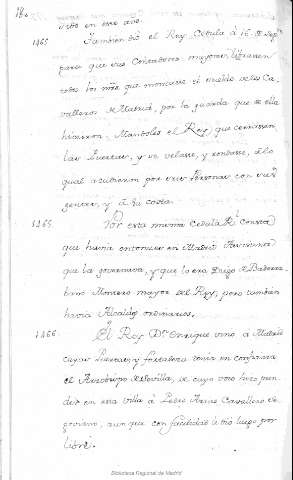 180.
dito en este año.
1465 Tambien dió el Rey Cedula á 16 de Sep.
para que sus Contadores mayores librasen
todos los mrs que montase el sueldo de los Ca-
valleros de Madrid, por la guarda que de ella
hicieron. Mandoles el Rey, que cerrasen
las Puertas, y se velase, y rondase, á lo
qual acudieron por sus Personas con sus
gentes, y á su costa.
1465. Por esta misma Cedula Rl. consta
que havia entonces en Madrid Asistente
que la governava, y que lo era Diego de
Montero mayor del Rey, pero tambien
havia Alcaldes ordinarios.
1466. El Rey Dn. Enrique vino á Madrid
cuyas Puertas, y fortaleza tenia en confianza
el Arzobispo de Sevilla, de cuyo vino hizo pren-
der en esta villa á Pedro Arias Cavallero Se-
goviano, aunque con facilidad le dió luego por
libre.
Biblioteca Regional de Madrid